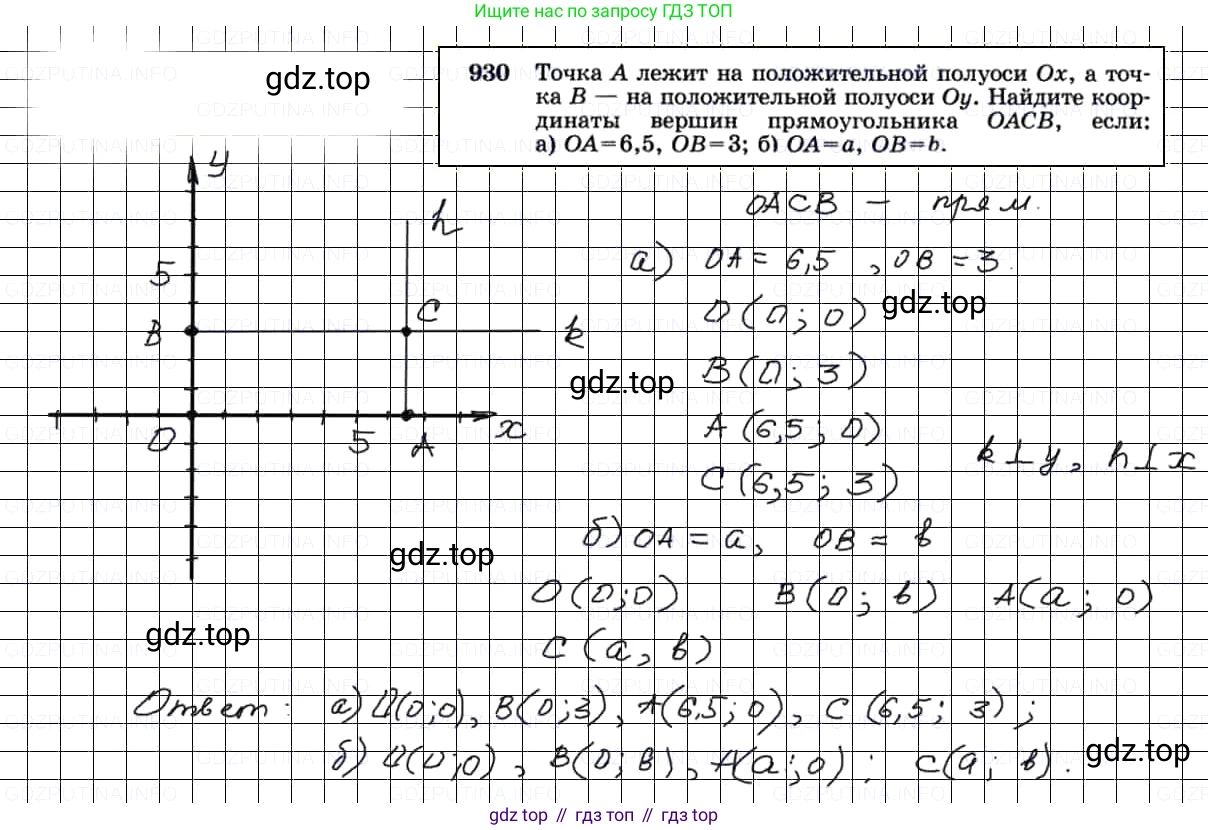 Ищите нас по запросу ГДЗ ТОП
gdz.top
930 Точка A лежит на положительной полуоси Ox, а точ-
ка B — на положительной полуоси Oy. Найдите коор-
динаты вершин прямоугольника OACB, если:
а) OA=6,5, OB=3; б) OA=a, OB=b.
y
OACB — прям.
h
а) OA = 6,5 , OB = 3.
5
C
O(0; 0)
gdz.top
B
k
gdz.top
B(0; 3)
O
5
A
x
A (6,5; 0)
k⊥y, h⊥x
C (6,5; 3)
б) OA = a, OB = b
gdz.top
O(0;0) B(0; b) A(a; 0)
gdz.top
C (a, b)
Ответ: а) O(0;0), B(0;3), A(6,5; 0), C (6,5; 3) ;
б) O(0;0) , B(0; b), A(a;0) ; C(a; b).
gdz.top
gdz top // гдз топ // gdz top
GDZPUTINA.INFO